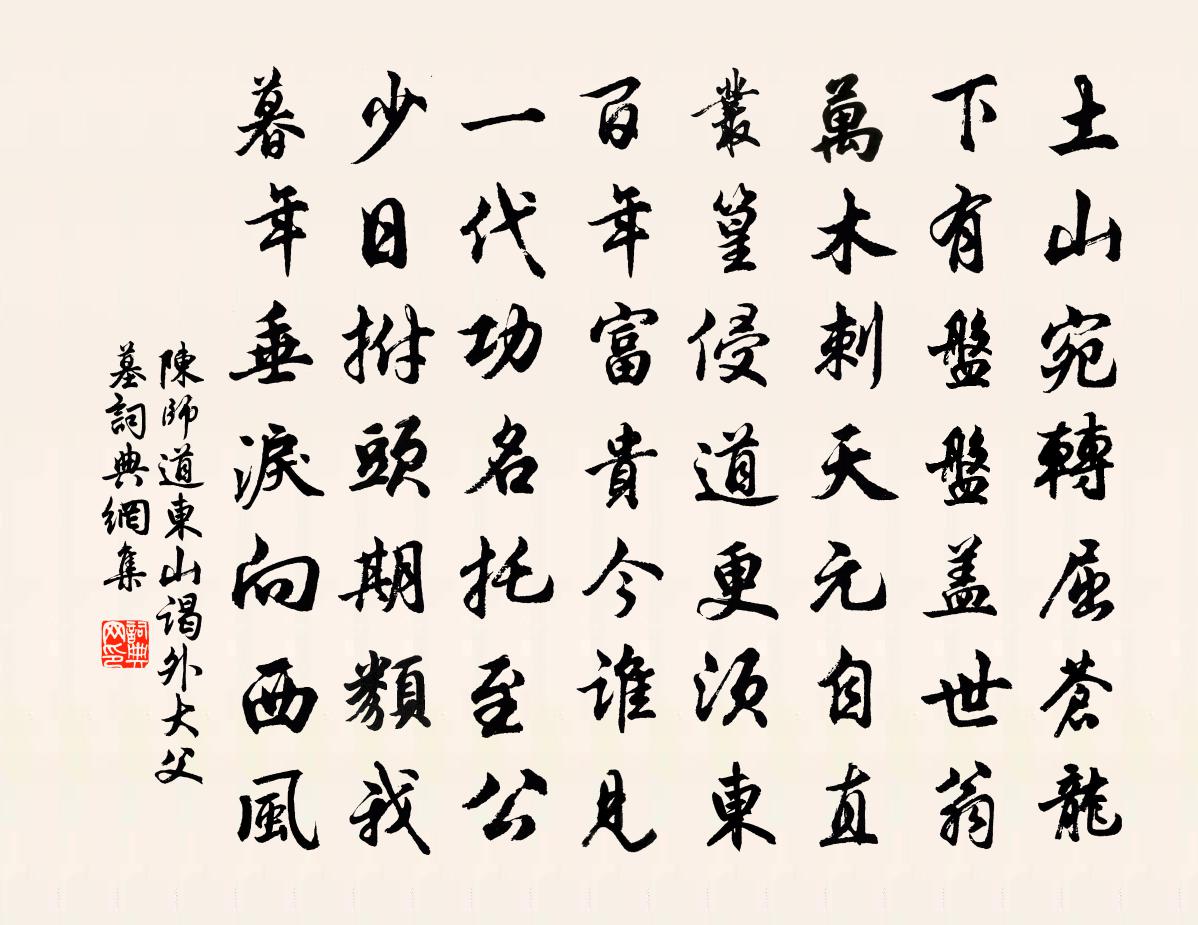 土山宛轉屈蒼龍
下有盤盤盖世翁
萬木刺天元自直
叢篁侵道更須東
百年富貴今誰見
一代功名托至公
少日拊頭期類我
暮年垂淚向西風
陳師道東山謁外大父
墓詞典網集
詞典网印